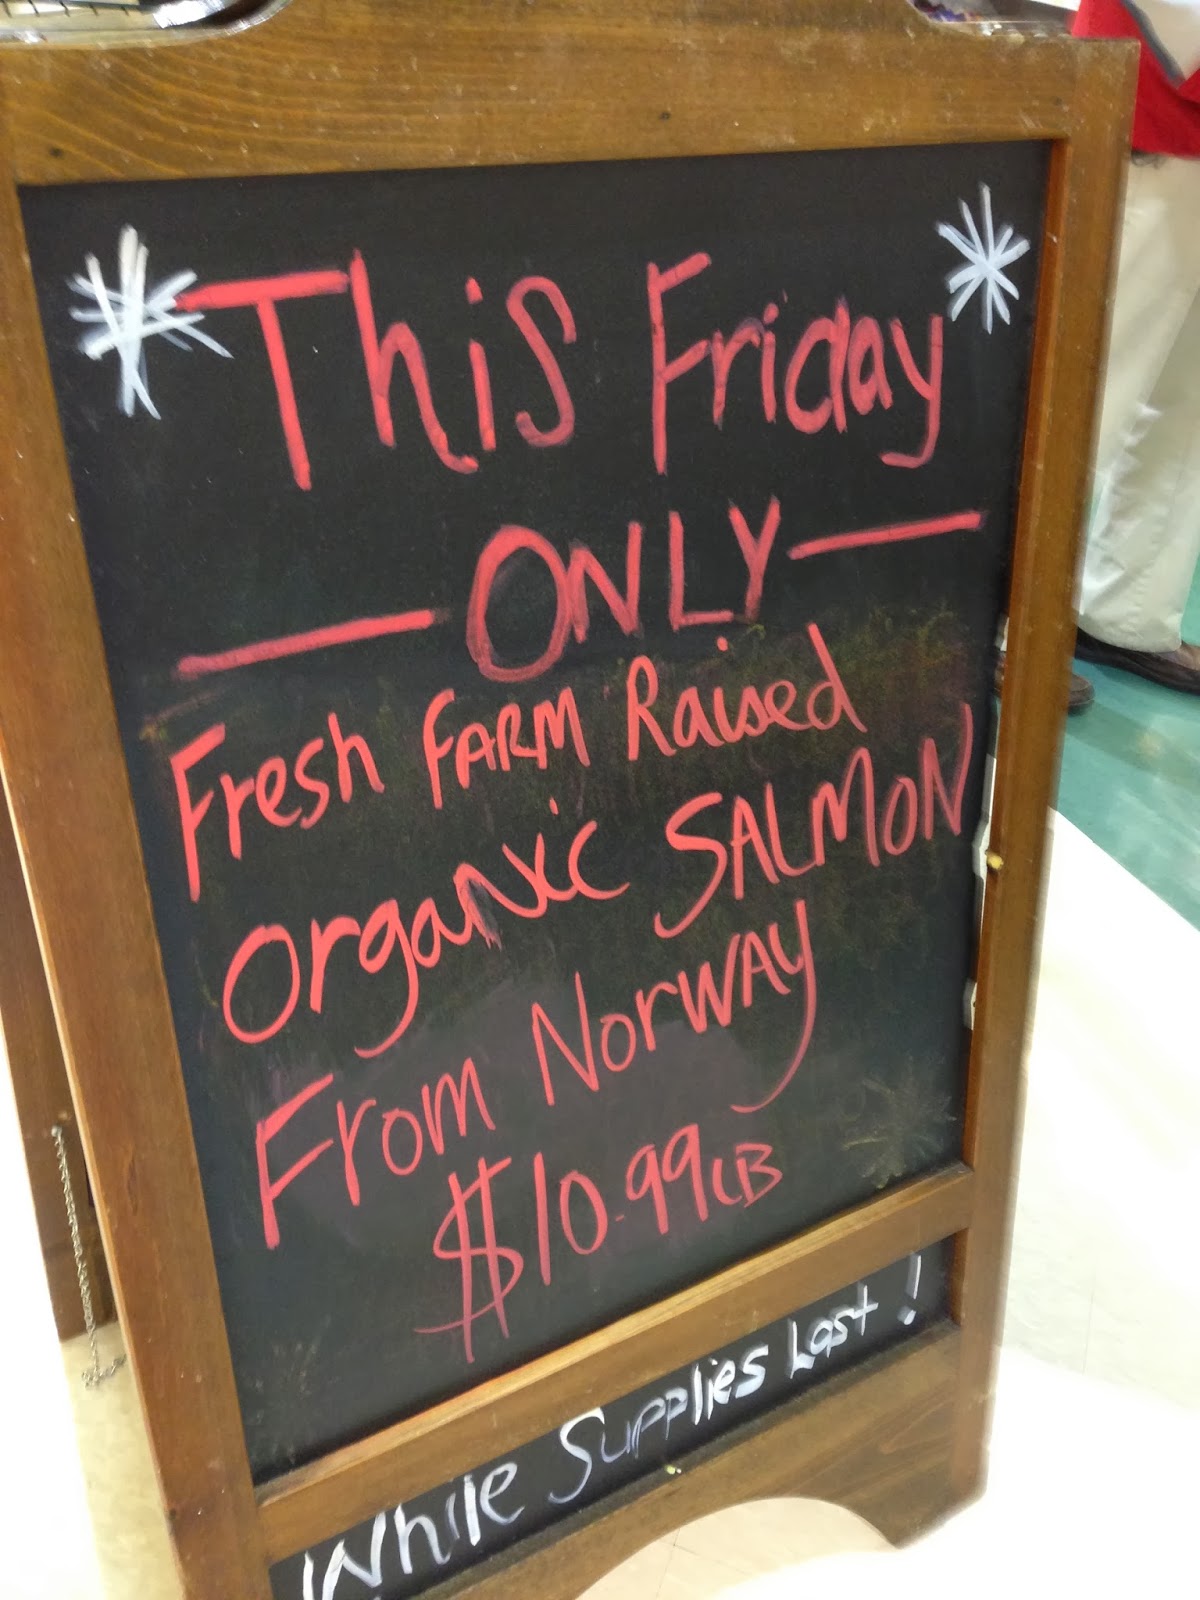 *This Friday*
— ONLY —
Fresh FARM Raised
Organic SALMON
From Norway
$10.99 LB
While Supplies Last!